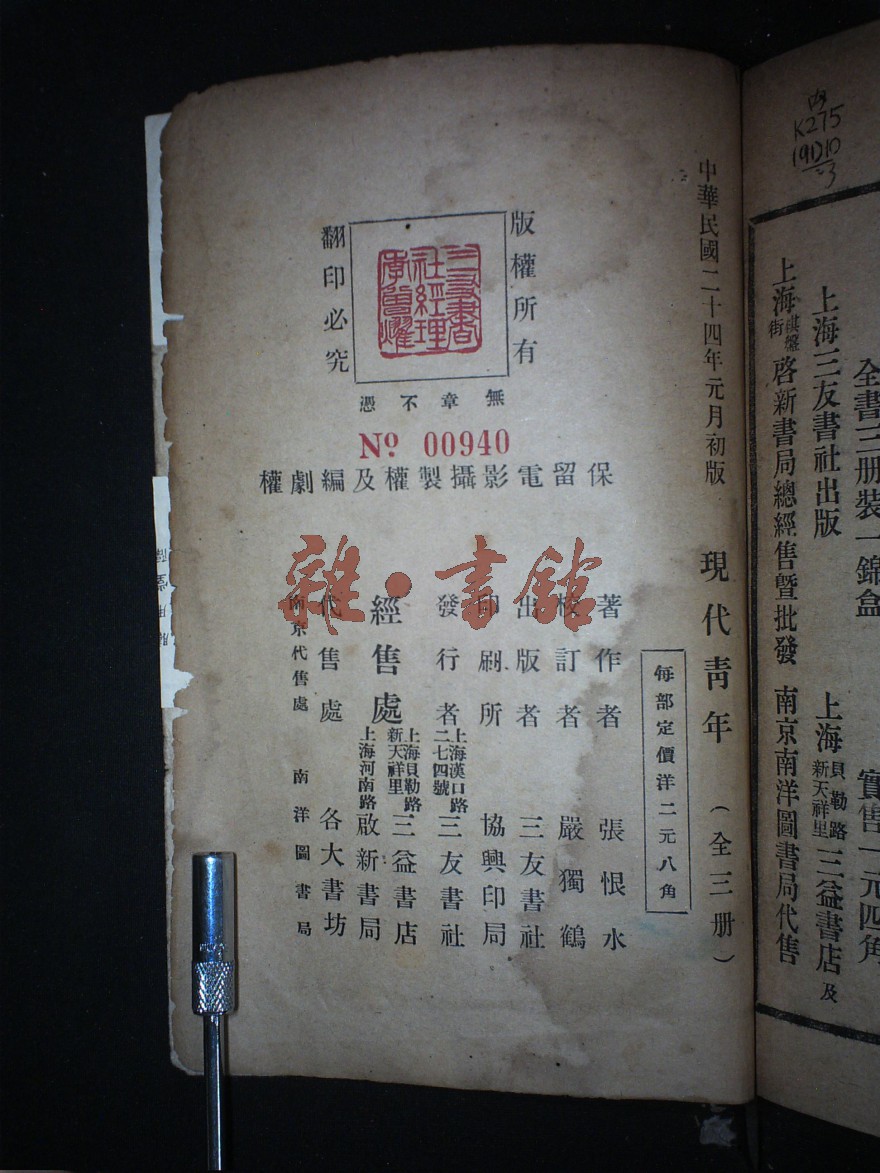 内
K275
全書三册裝一錦盒
實售一元四角
上海三友書社出版
上海貝勒路新天祥里三益書店及
上海棋盤街啓新書局總經售暨批發
南京南洋圖書局代售
中華民國二十四年元月初版
現代靑年（全三册）
每部定價洋二元八角
版權所有
翻印必究
三友書社經理李魯燿
無章不憑
No 00940
保留電影攝製權及編劇權
著作者 張恨水
校訂者 嚴獨鶴
出版者 三友書社
印刷所 協興印局
發行者 上海漢口路二七四號 三友書社
經售處 上海貝勒路新天祥里 三益書店
上海河南路 啟新書局
代售處 各大書坊
南京代售處 南洋圖書局
雜·書館